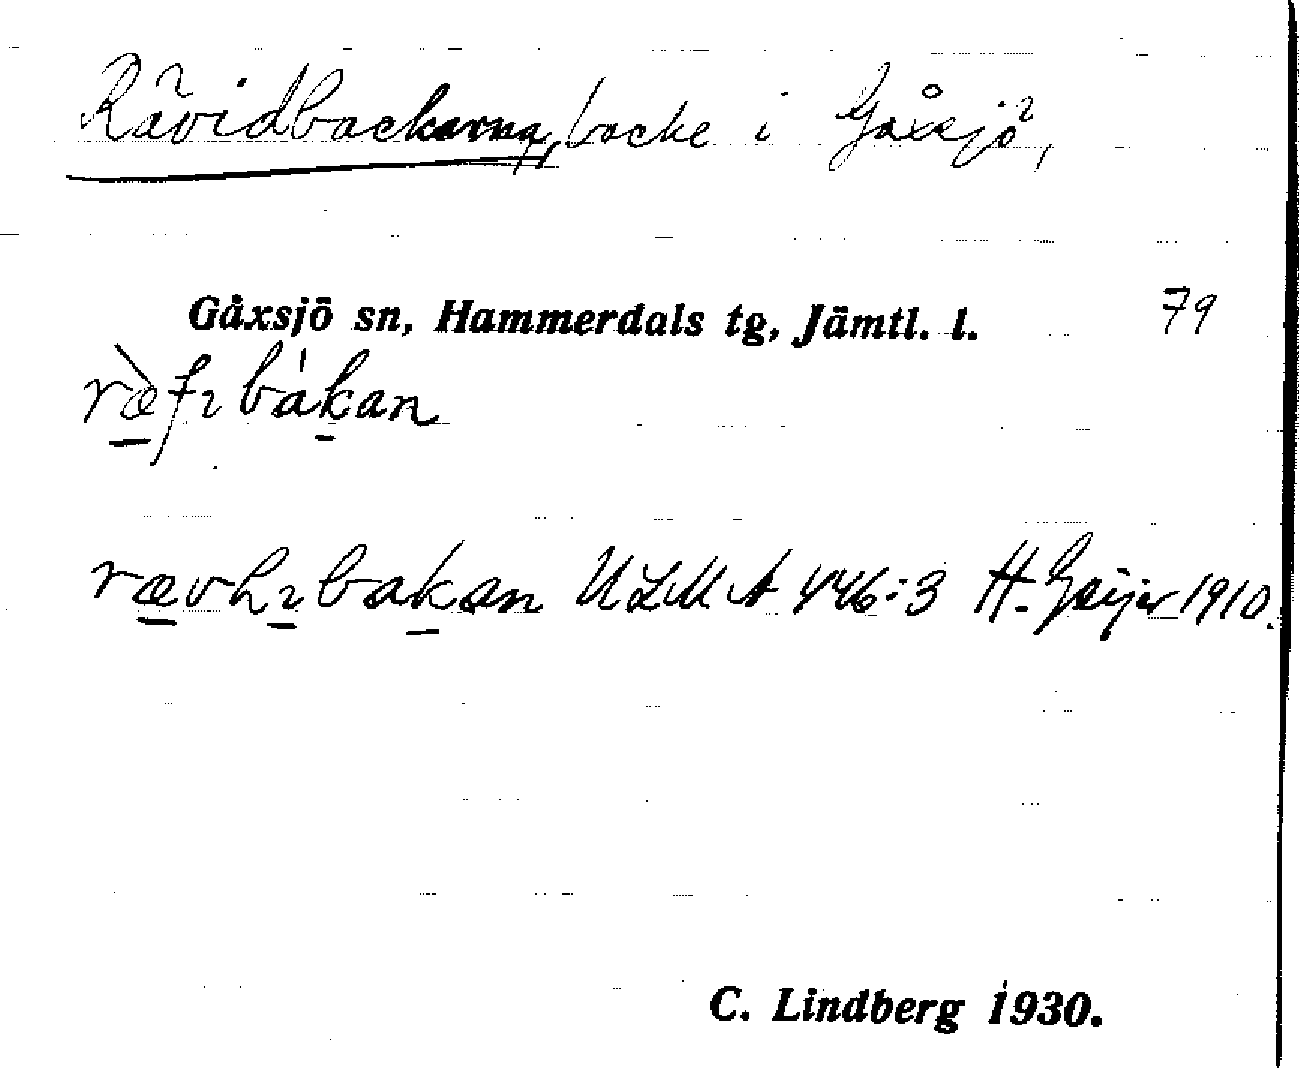 Rävidbackarna, backe i Gåxsjö,
Gåxsjö sn, Hammerdals tg, Jämtl. l. 79
ræ̀fıbákan
rævhıbakan ULMA 446:3 H. Geijer 1910.
C. Lindberg 1930.